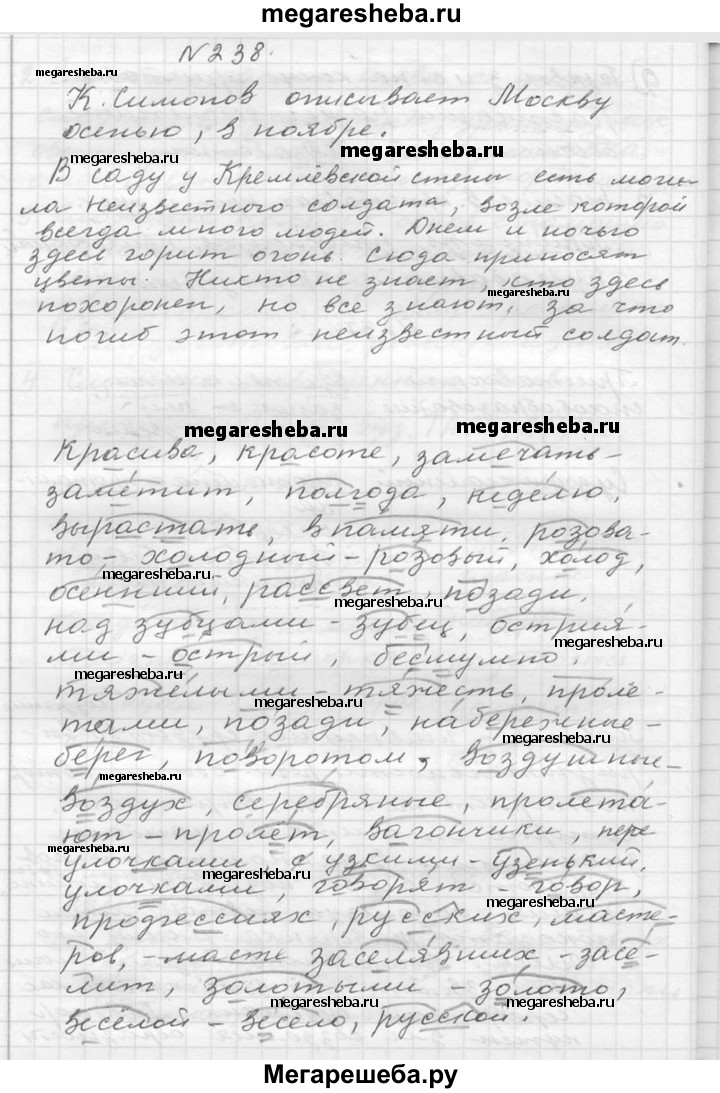 megaresheba.ru
N238.
megaresheba.ru
К. Симонов описывает Москву
осенью, в ноябре.
megaresheba.ru
megaresheba.ru
В саду у Кремлёвской стены есть моги-
ла Неизвестного солдата, возле которой
всегда много людей. Днем и ночью
здесь горит огонь. Сюда приносят
цветы. Никто не знает, кто здесь
megaresheba.ru
похоронен, но все знают, за что
погиб этот неизвестный солдат.
megaresheba.ru
megaresheba.ru
Красива, красоте, замечать-
заметит, полгода, неделю,
вырастать, в памяти, розова-
то-холодный-розовый, холод,
megaresheba.ru
осенний, рассвет, позади,
megaresheba.ru
над зубцами - зубец, острия-
megaresheba.ru
ми - острый, бесшумно,
тяжелыми - тяжесть, проле-
megaresheba.ru
тами, позади, набережные-
megaresheba.ru
берег, поворотом, воздушные-
megaresheba.ru
воздух, серебряные, пролета-
ют - пролёт, вагончики, пере
улочками, с узкими - узенький,
megaresheba.ru
улочками, говорят - говор,
megaresheba.ru
профессиях, русских, масте-
ров, - масте заселявших - засе-
лит, золотыми - золото,
megaresheba.ru
megaresheba.ru
весёлой - весело, русской.
megaresheba.ru
megaresheba.ru
Мегарешеба.ру